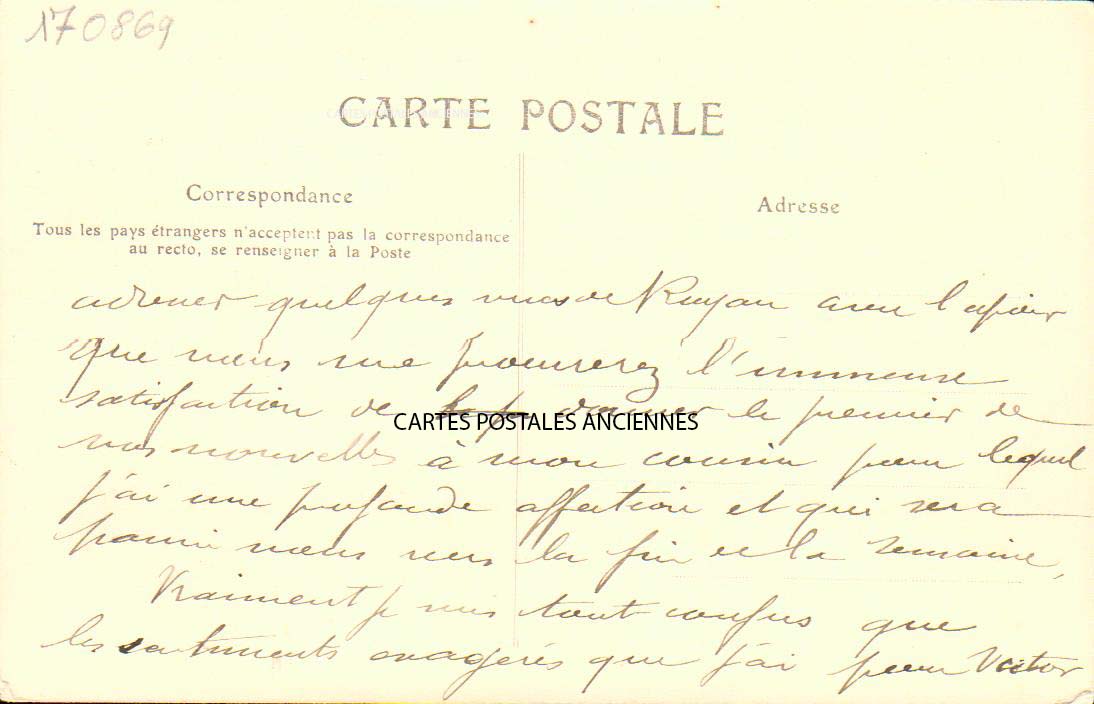 170869
CARTE POSTALE
Correspondance
Adresse
Tous les pays étrangers n'acceptent pas la correspondance
au recto, se renseigner à la Poste
adresser quelques vues de Royan avec l'espoir
que vous me procurerez l'immense
satisfaction de donner le premier de
CARTES POSTALES ANCIENNES
vos nouvelles à mon cousin pour lequel
j'ai une profonde affection et qui sera
parmi nous vers la fin de la semaine,
Vraiment je suis tout confus que
les sentiments exagérés que j'ai pour Victor